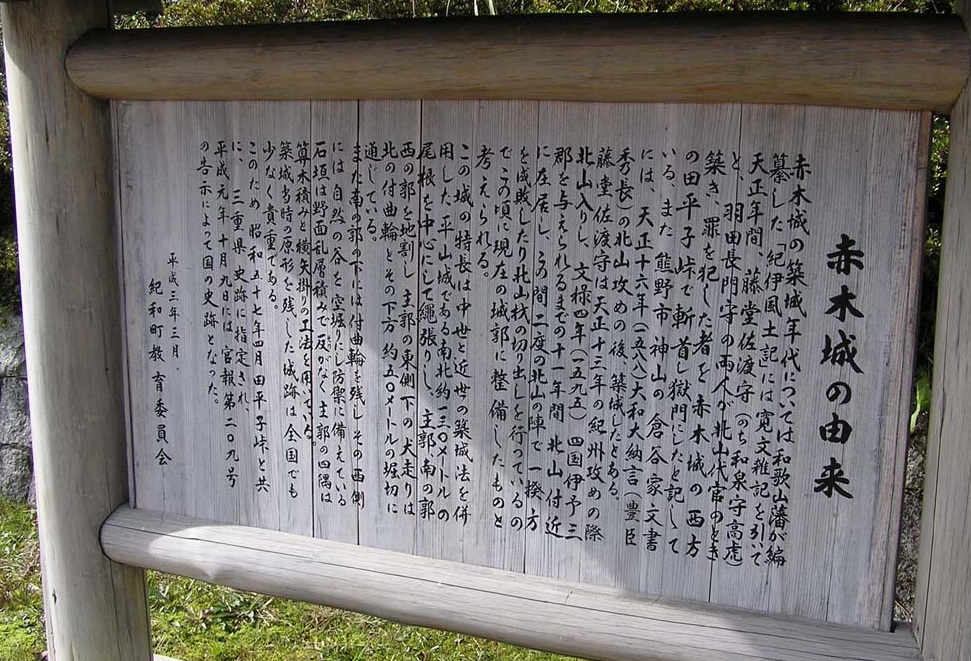 赤木城の由来
赤木城の築城年代については和歌山藩が編
纂した「紀伊風土記」には寛文雑記を引いて
天正年間、藤堂佐渡守(のち和泉守高虎)
と、羽田長門守の両人が北山代官のとき
築き、罪を犯した者を赤木城の西方
の田平子峠で斬首し獄門にしたと記して
いる。また、熊野市神山の倉谷家文書
には、天正十六年(一五八八)大和大納言(豊臣
秀長)の北山攻めの後、築城したとある。
藤堂佐渡守は天正十三年の紀州攻めの際
北山入りし、文禄四年(一五九五)四国伊予三
郡を与えられるまでの十一年間、北山付近
に在居し、この間二度の北山の陣で一揆方
を成敗したり北山材の切り出しを行っているの
でこの頃に現在の城郭に整備したものと
考えられる。
この城の特長は中世と近世の築城法を併
用した平山城である南北約一三〇メートルの
尾根を中心にして縄張りし、主郭、南の郭
西の郭を地割し、主郭の東側下の犬走りは
北の付曲輪とその下方約五〇メートルの堀切に
通じている。
また南の郭の下には付曲輪を残しその西側
には自然の谷を空堀りにし防禦に備えている
石垣は野面乱層積みで反がなく主郭の四隅は
算木積みと横矢掛りの工法を用いてる
築城当時の原形を残した城跡は全国でも
少なく貴重である。
このため、昭和五十七年四月田平子峠と共
に、三重県史跡に指定され、
平成元年十月九日には、官報第二〇九号
の告示によって国の史跡となった。
平成三年三月、
紀和町教育委員会